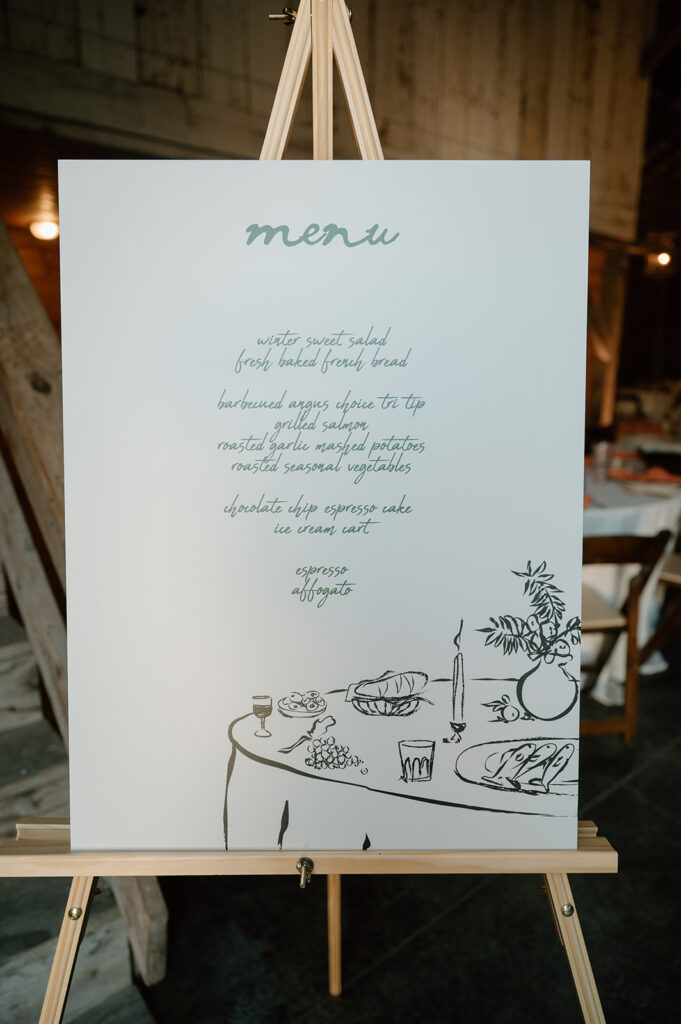 menu
winter sweet salad
fresh baked french bread
barbecued angus choice tri tip
grilled salmon
roasted garlic mashed potatoes
roasted seasonal vegetables
chocolate chip espresso cake
ice cream cart
espresso
affogato